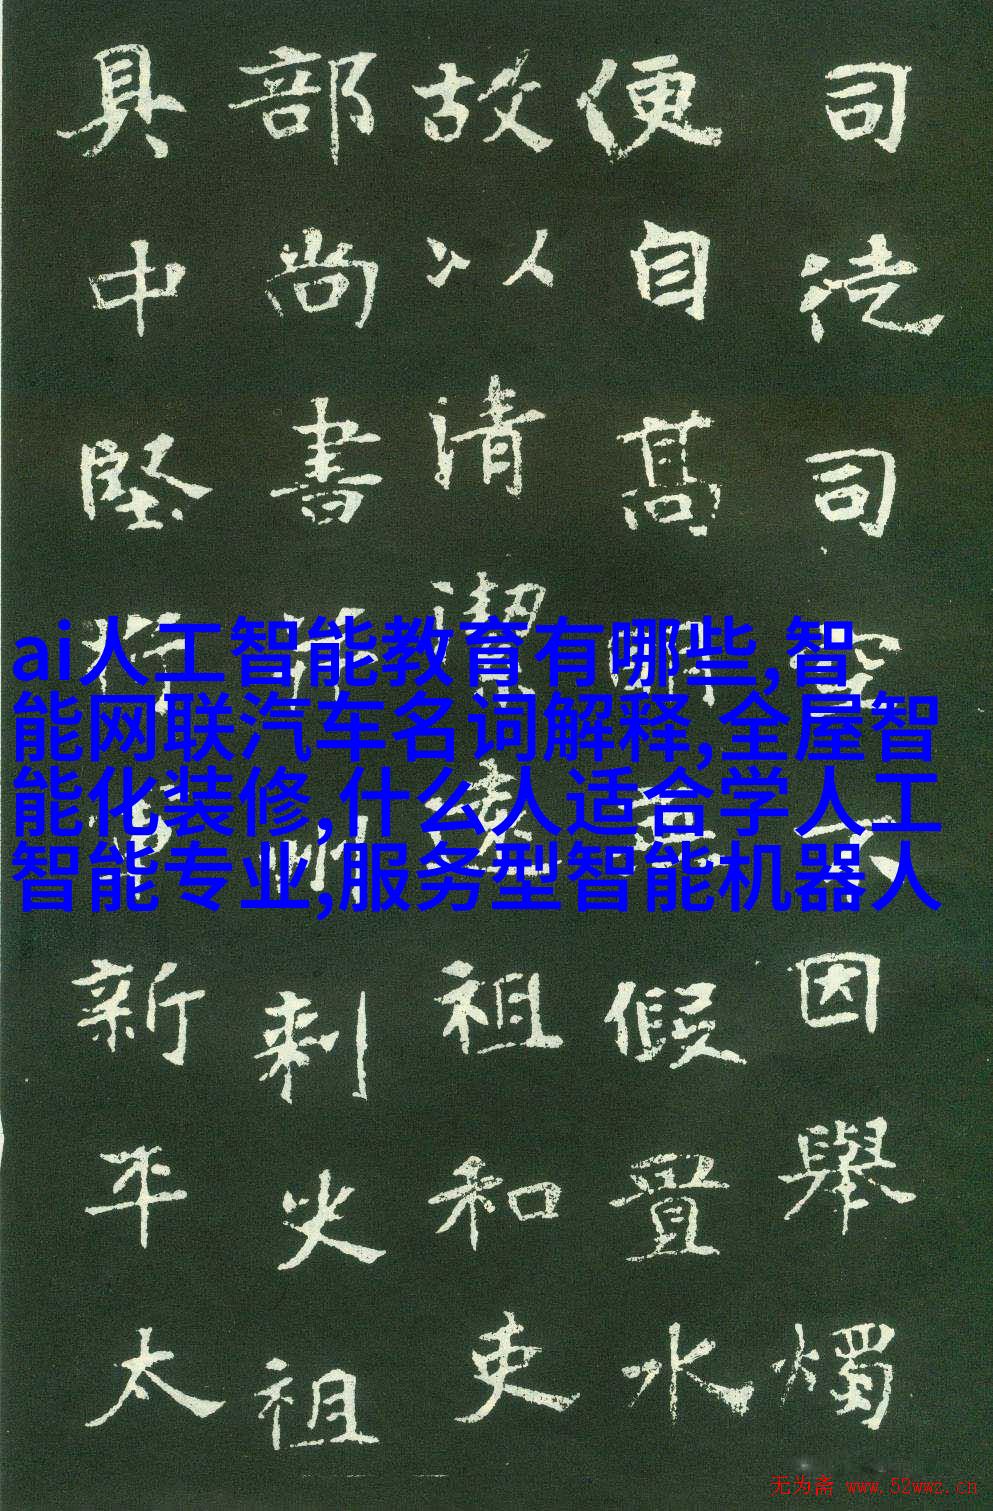 司徒司空因舉燭
便自高假置水
故以清潔祖和吏
部尚書刺史祖
具中堅將新平太
ai人工智能教育有哪些,智
能网联汽车名词解释,全屋智
能化装修,什么人适合学人工
智能专业,服务型智能机器人
无为斋 www.52wwz.cn